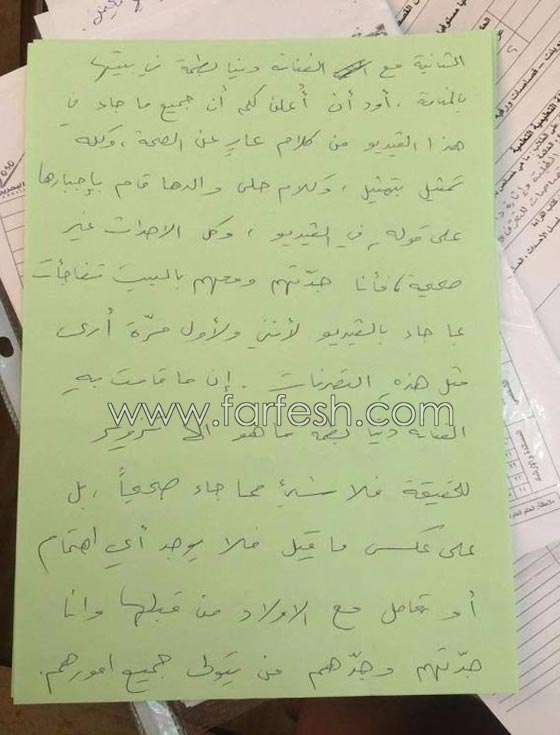 الثانية مع الفنانة دنيا بطمة في بيتها
بالمنامة. أود أن أعلن لكم أن جميع ما جاء في
هذا الفيديو من كلام عارٍ عن الصحة، وكله
تمثيل بتمثيل، وكلام حلى والدها قام بإجبارها
على قوله في الفيديو، وكل الاحداث غير
صحيحة، فأنا جدّتهم ومعهم بالبيت تفاجأت
بما جاء بالفيديو لأنني ولأول مرّة أرى
مثل هذه التصرفات. إن ما قامت بهِ
www.farfesh.com
الفنانة دنيا بطمة ما هو الا تزوير
للحقيقة فلا شيئ مما جاء صحيحاً، بل
على عكس ما قيل فلا يوجد أي اهتمام
أو تعامل مع الاولاد من قبلها وانا
جدّتهم وجدّهم من يتولى جميع امورهم.